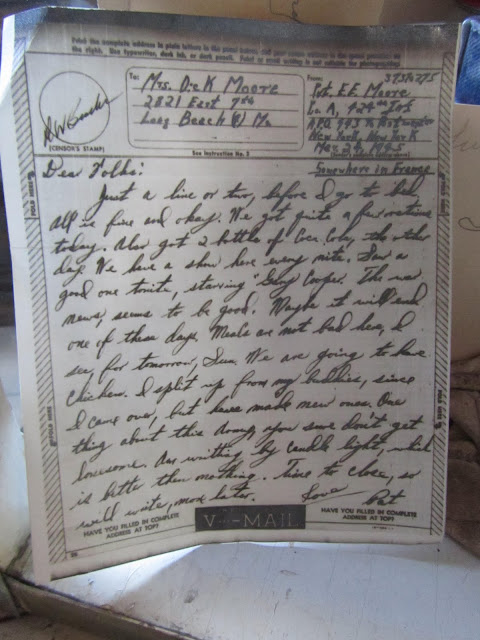 Print the complete address in plain letters in the panel below, and your return address in the space provided on
the right. Use typewriter, dark ink, or dark pencil. Faint or small writing is not suitable for photographing.
(CENSOR'S STAMP)
To:
Mrs. Dick Moore
2021 East 7th
Long Beach
See Instruction No. 2
From:
Pvt. E E Moore
Co A, 424th Inf
New York, New York
Mar 24, 1945
Somewhere in France
Dear Folks:
Just a line or two, before I go to bed
All is fine and okay. We got quite a few rations
today. Also got 2 bottles of Coca Cola, the other
day. We have a show here every nite. Saw a
good one tonite, starring "Gary Cooper. The war
news, seems to be good. Maybe it will end
one of these days. Meals are not bad here, I
see, for tomorrow, Sun. We are going to have
chicken. I split up from my buddies, since
I came over, but have made new ones. One
thing about this Army, you sure don't get
lonesome. Am writting by candle light, which
is better then nothing. Time to close, so
will write, more later.
Love
Pat
HAVE YOU FILLED IN COMPLETE
ADDRESS AT TOP?
V-MAIL
HAVE YOU FILLED IN COMPLETE
ADDRESS AT TOP?
FOLD HERE
FOLD HERE